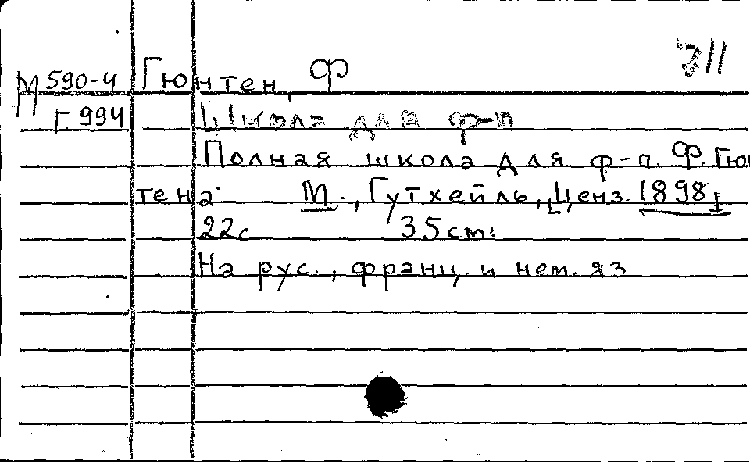 711
М 590-4 Гюнтен, Ф
Г 994
Школа для ф-п
Полная школа для ф-п. Ф. Гюн
тена. М., Гутхейль, [Ценз. 1898]
22с 35см.
На рус., франц. и нем. яз